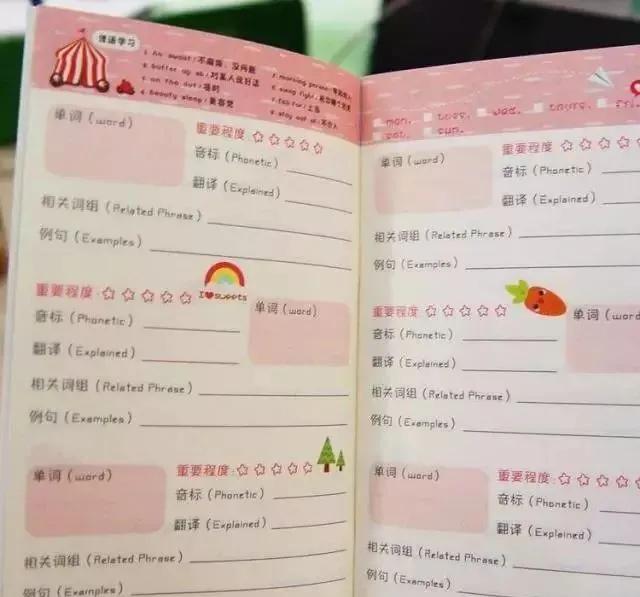 俚语学习
1. no sweat:不麻烦、没问题
2. butter up sb:对某人说好话
3. on the dot:准时
4. beauty sleep:美容觉
5. morning person:
6. swing
7. too far:
8. stay out of:不介入
单词(word)
重要程度:
音标(Phonetic)
翻译(Explained)
相关词组(Related Phrase)
例句(Examples)
重要程度:
I ♥ sweets
单词(word)
音标(Phonetic)
翻译(Explained)
相关词组(Related Phrase)
例句(Examples)
单词(word)
重要程度:
音标(Phonetic)
翻译(Explained)
相关词组(Related Phrase)
例句(Examples)
mon. tues. wed. thurs. fri.
sat. sun.
单词(word)
重要程度:
音标(Phonetic)
翻译(Explained)
相关词组(Related Phrase)
例句(Examples)
重要程度
单词(word)
音标(Phonetic)
翻译(Explained)
相关词组(Related Phrase)
例句(Examples)
单词(word)
重要程度:
音标(Phonetic)
翻译(Explained)
相关词组(Related Phrase)
例句(Examples)